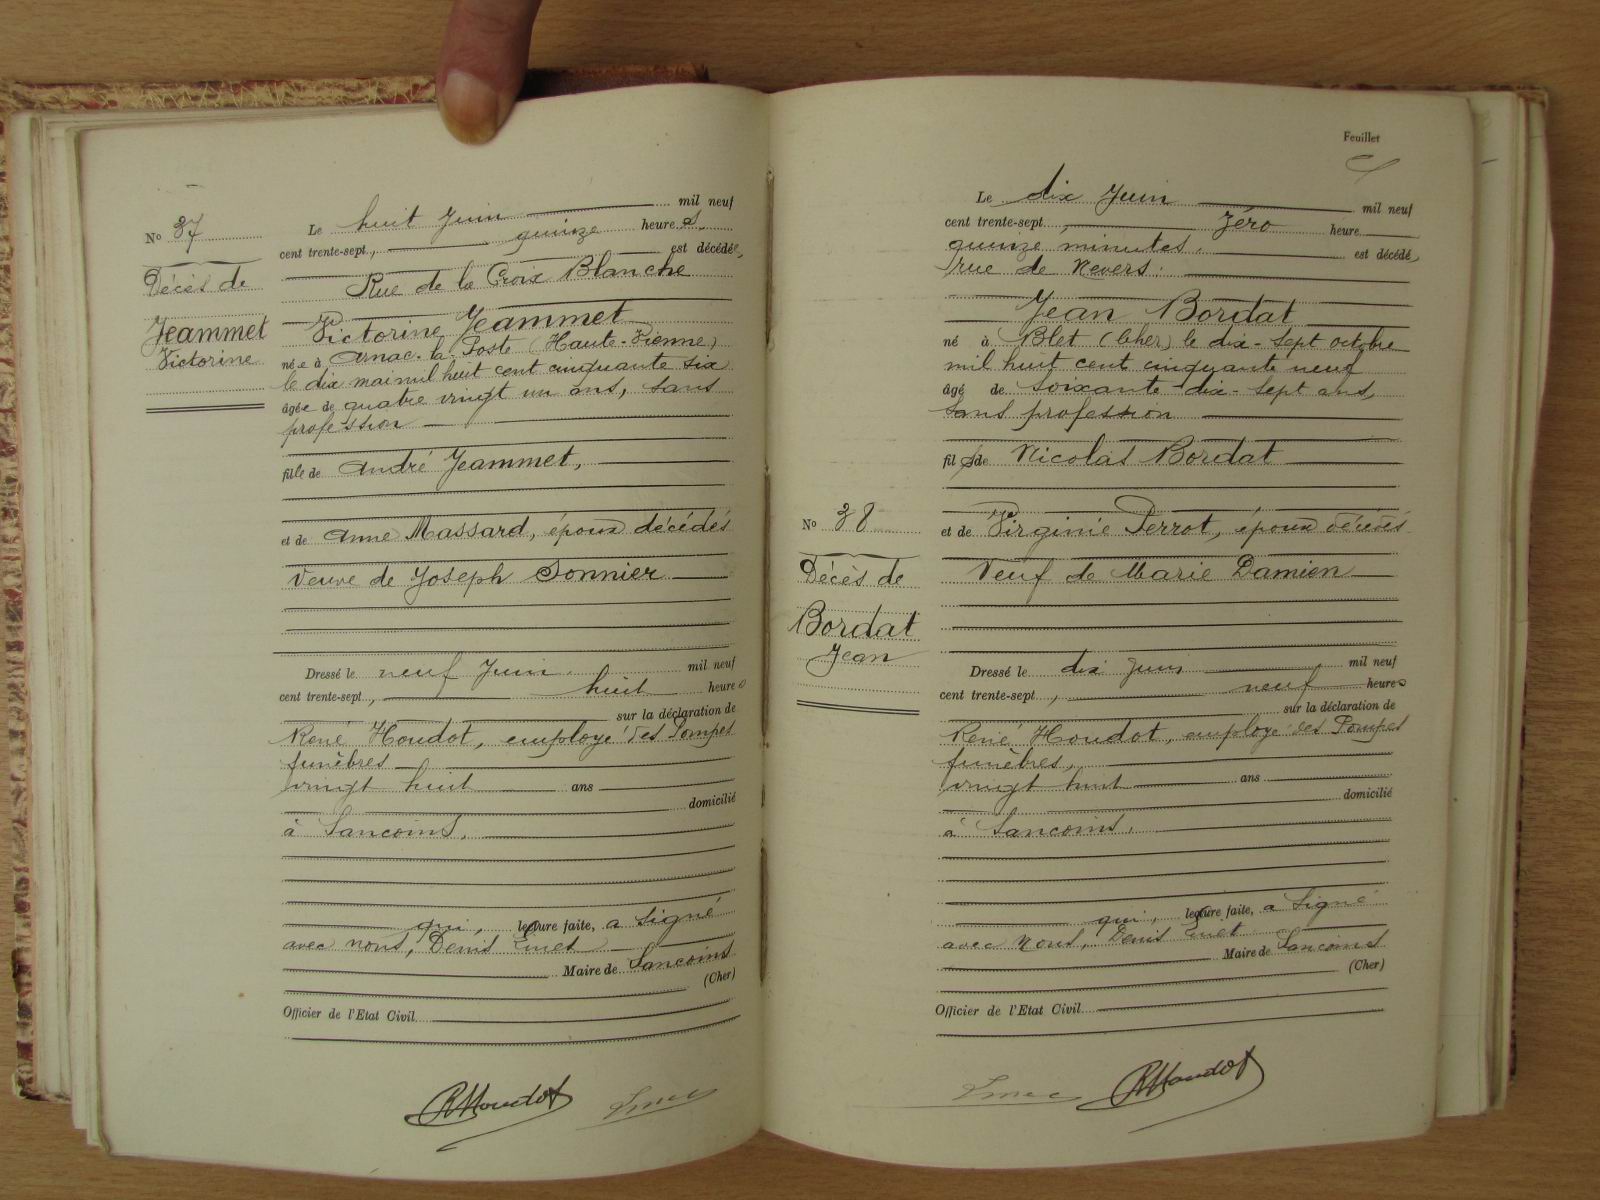 No 37
Décès de
Jeammet
Victorine
Le huit Juin mil neuf
cent trente-sept, quinze heures.
est décédée,
Rue de la Croix Blanche
Victorine Jeammet
née à Arnac-la-Poste (Haute-Vienne)
le dix mai mil huit cent cinquante six
âgée de quatre vingt un ans, sans
profession
fille de André Jeammet,
et de Anne Massard, époux décédés
Veuve de Joseph Sonnier
Dressé le neuf Juin mil neuf
cent trente-sept, huit heures
sur la déclaration de
René Houdot, employé des Pompes
funèbres
vingt huit ans
domicilié
à Sancoins,
qui, lecture faite, a signé
avec nous, Denis
Maire de Sancoins
(Cher)
Officier de l'Etat Civil
RHoudot
Feuillet
Le dix Juin mil neuf
cent trente-sept, zéro heure
quinze minutes, est décédé,
rue de Nevers:
Jean Bordat
né à Blet (Cher) le dix-sept octobre
mil huit cent cinquante neuf
âgé de soixante dix-sept ans,
sans profession
fils de Nicolas Bordat
No 38
Décès de
Bordat
Jean
et de Virginie Perrot, époux décédés
Veuf de Marie Damien
Dressé le dix Juin mil neuf
cent trente-sept, neuf heures
sur la déclaration de
René Houdot, employé des Pompes
funèbres,
vingt huit ans
domicilié
à Sancoins,
qui, lecture faite, a signé
avec Nous, Denis
Maire de Sancoins
(Cher)
Officier de l'Etat Civil
RHoudot